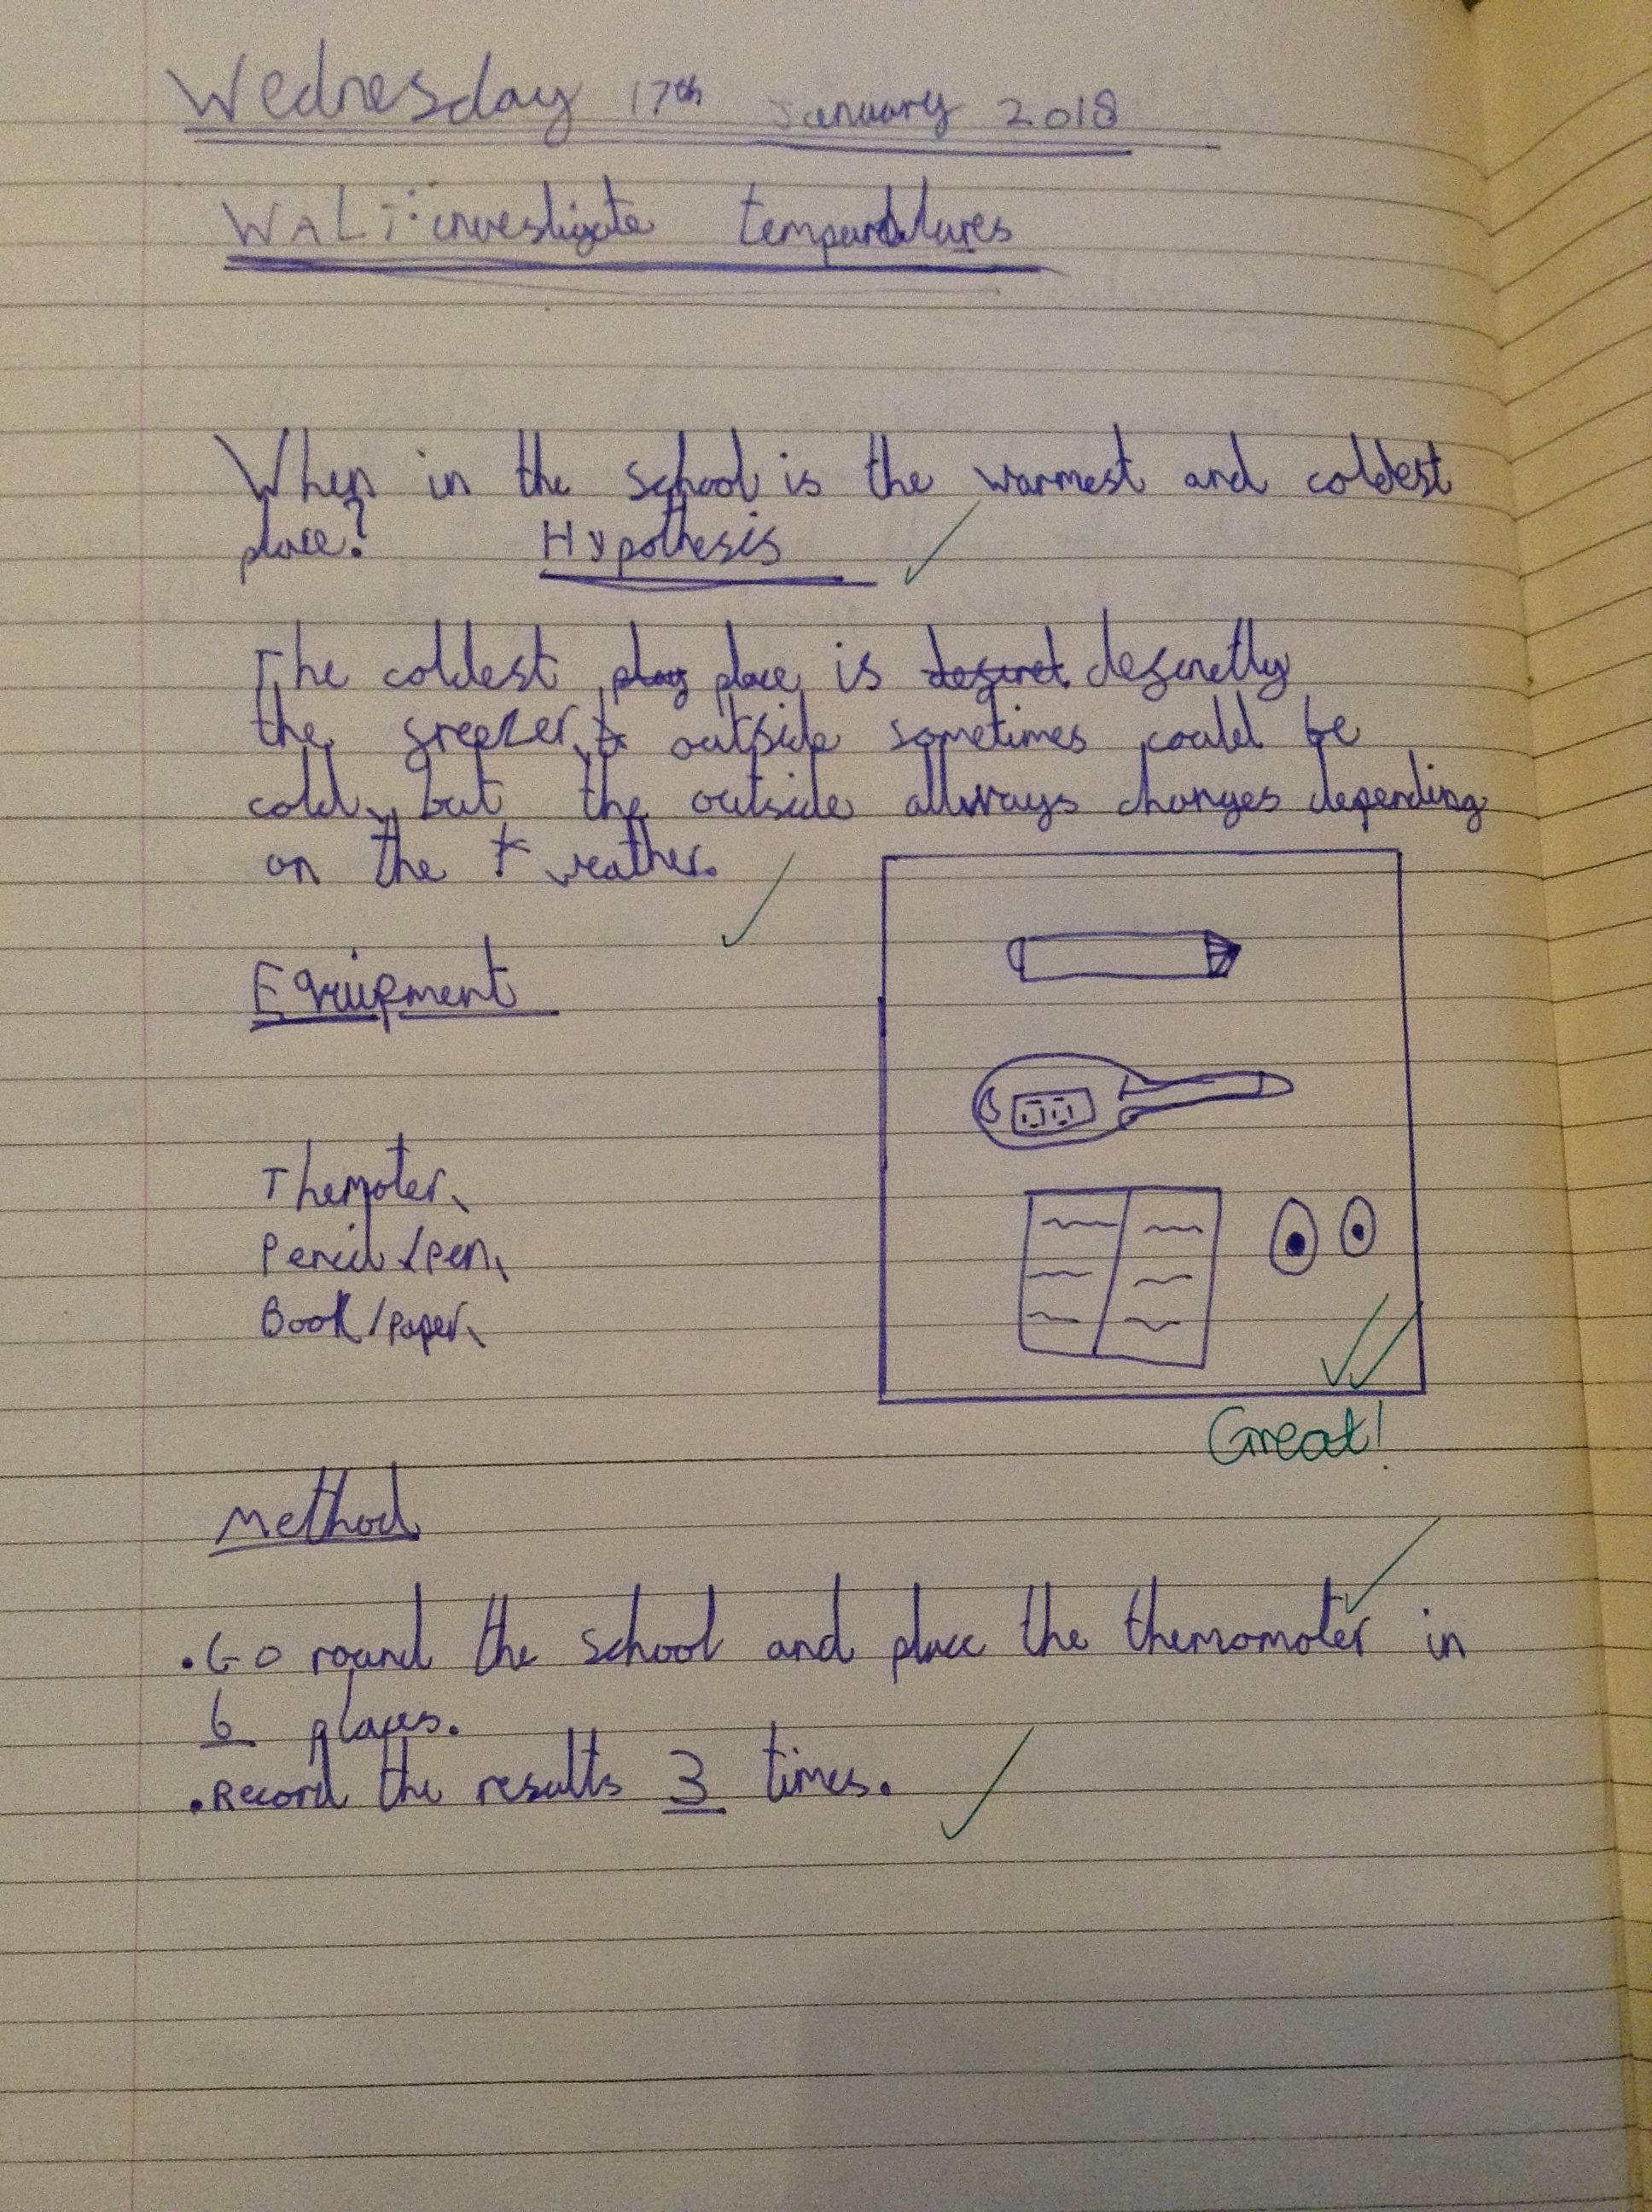 Wednesday 17th January 2018
WALT: investigate temparatures
When in the school is the warmest and coldest
place? Hypothesis
The coldest play place is desinet desinetly
the freezer, outside sometimes could be
cold, but the outside allways changes depending
on the t weather.
Equipment
Themoter,
Pencil/pen,
Book/paper,
Great!
Method
.Go round the school and place the themomoter in
6 places.
.Record the results 3 times.